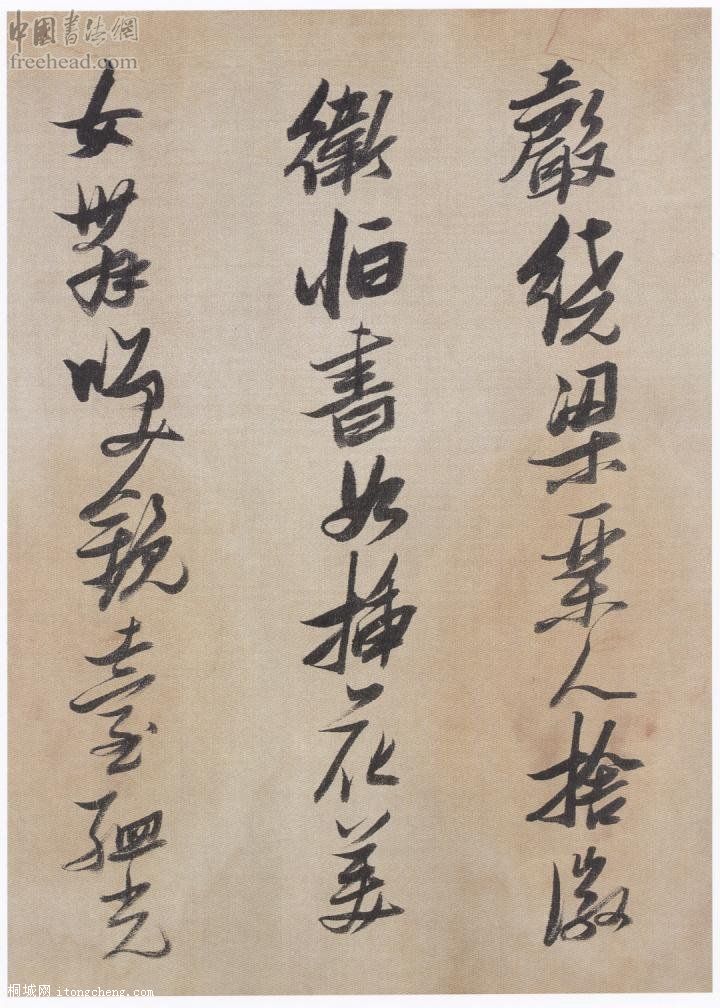 中國書法網
freehead.com
聲绕梁琹人捨徽
衛恒書如插花美
女舞咲鏡臺孟光
桐城网 itongcheng.com